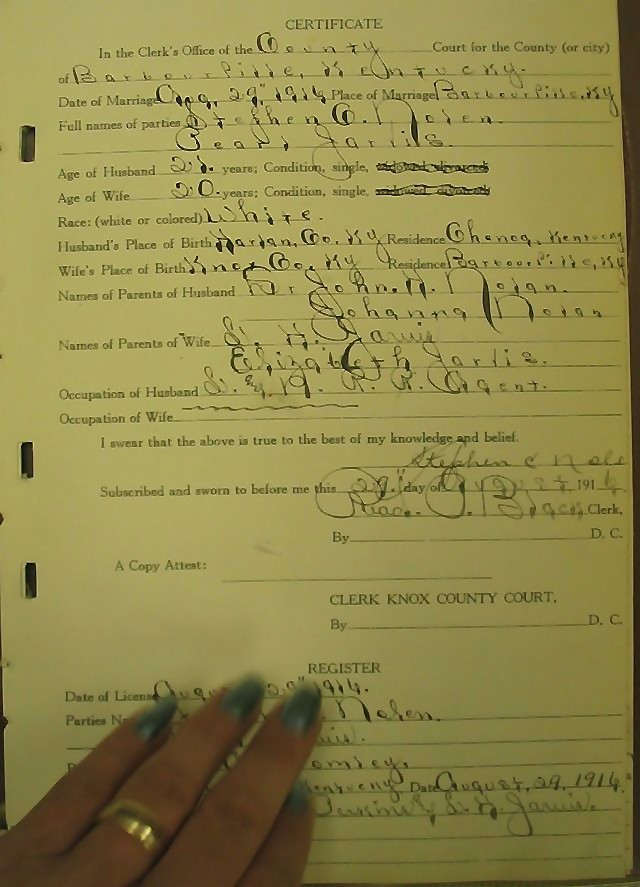 CERTIFICATE
In the Clerk's Office of the County Court for the County (or city)
of Barbourville, Kentucky.
Date of Marriage Aug. 29" 1916 Place of Marriage Barbourville, Ky
Full names of parties Stephen C. Nolen.
Pearl Jarvis.
Age of Husband 21. years; Condition, single, widowed divorced
Age of Wife 20. years; Condition, single, widowed divorced
Race: (white or colored) White.
Husband's Place of Birth Harlan, Co. Ky Residence Chenoa, Kentucky
Wife's Place of Birth Knox Co. Ky Residence Barbourville, Ky
Names of Parents of Husband John. Nolan.
Johanna Nolan
Names of Parents of Wife H. Jarvis
Elizabeth Jarvis.
Occupation of Husband R. R. Agent.
Occupation of Wife
I swear that the above is true to the best of my knowledge and belief.
Stephen C Nole
Subscribed and sworn to before me this 29." day of August 1916
Read. Black Clerk,
By D. C.
A Copy Attest:
CLERK KNOX COUNTY COURT,
By D. C.
REGISTER
Date of License August 29" 1916.
Parties Nolen.
Kentucky Date August, 29, 1916
Jarvis.